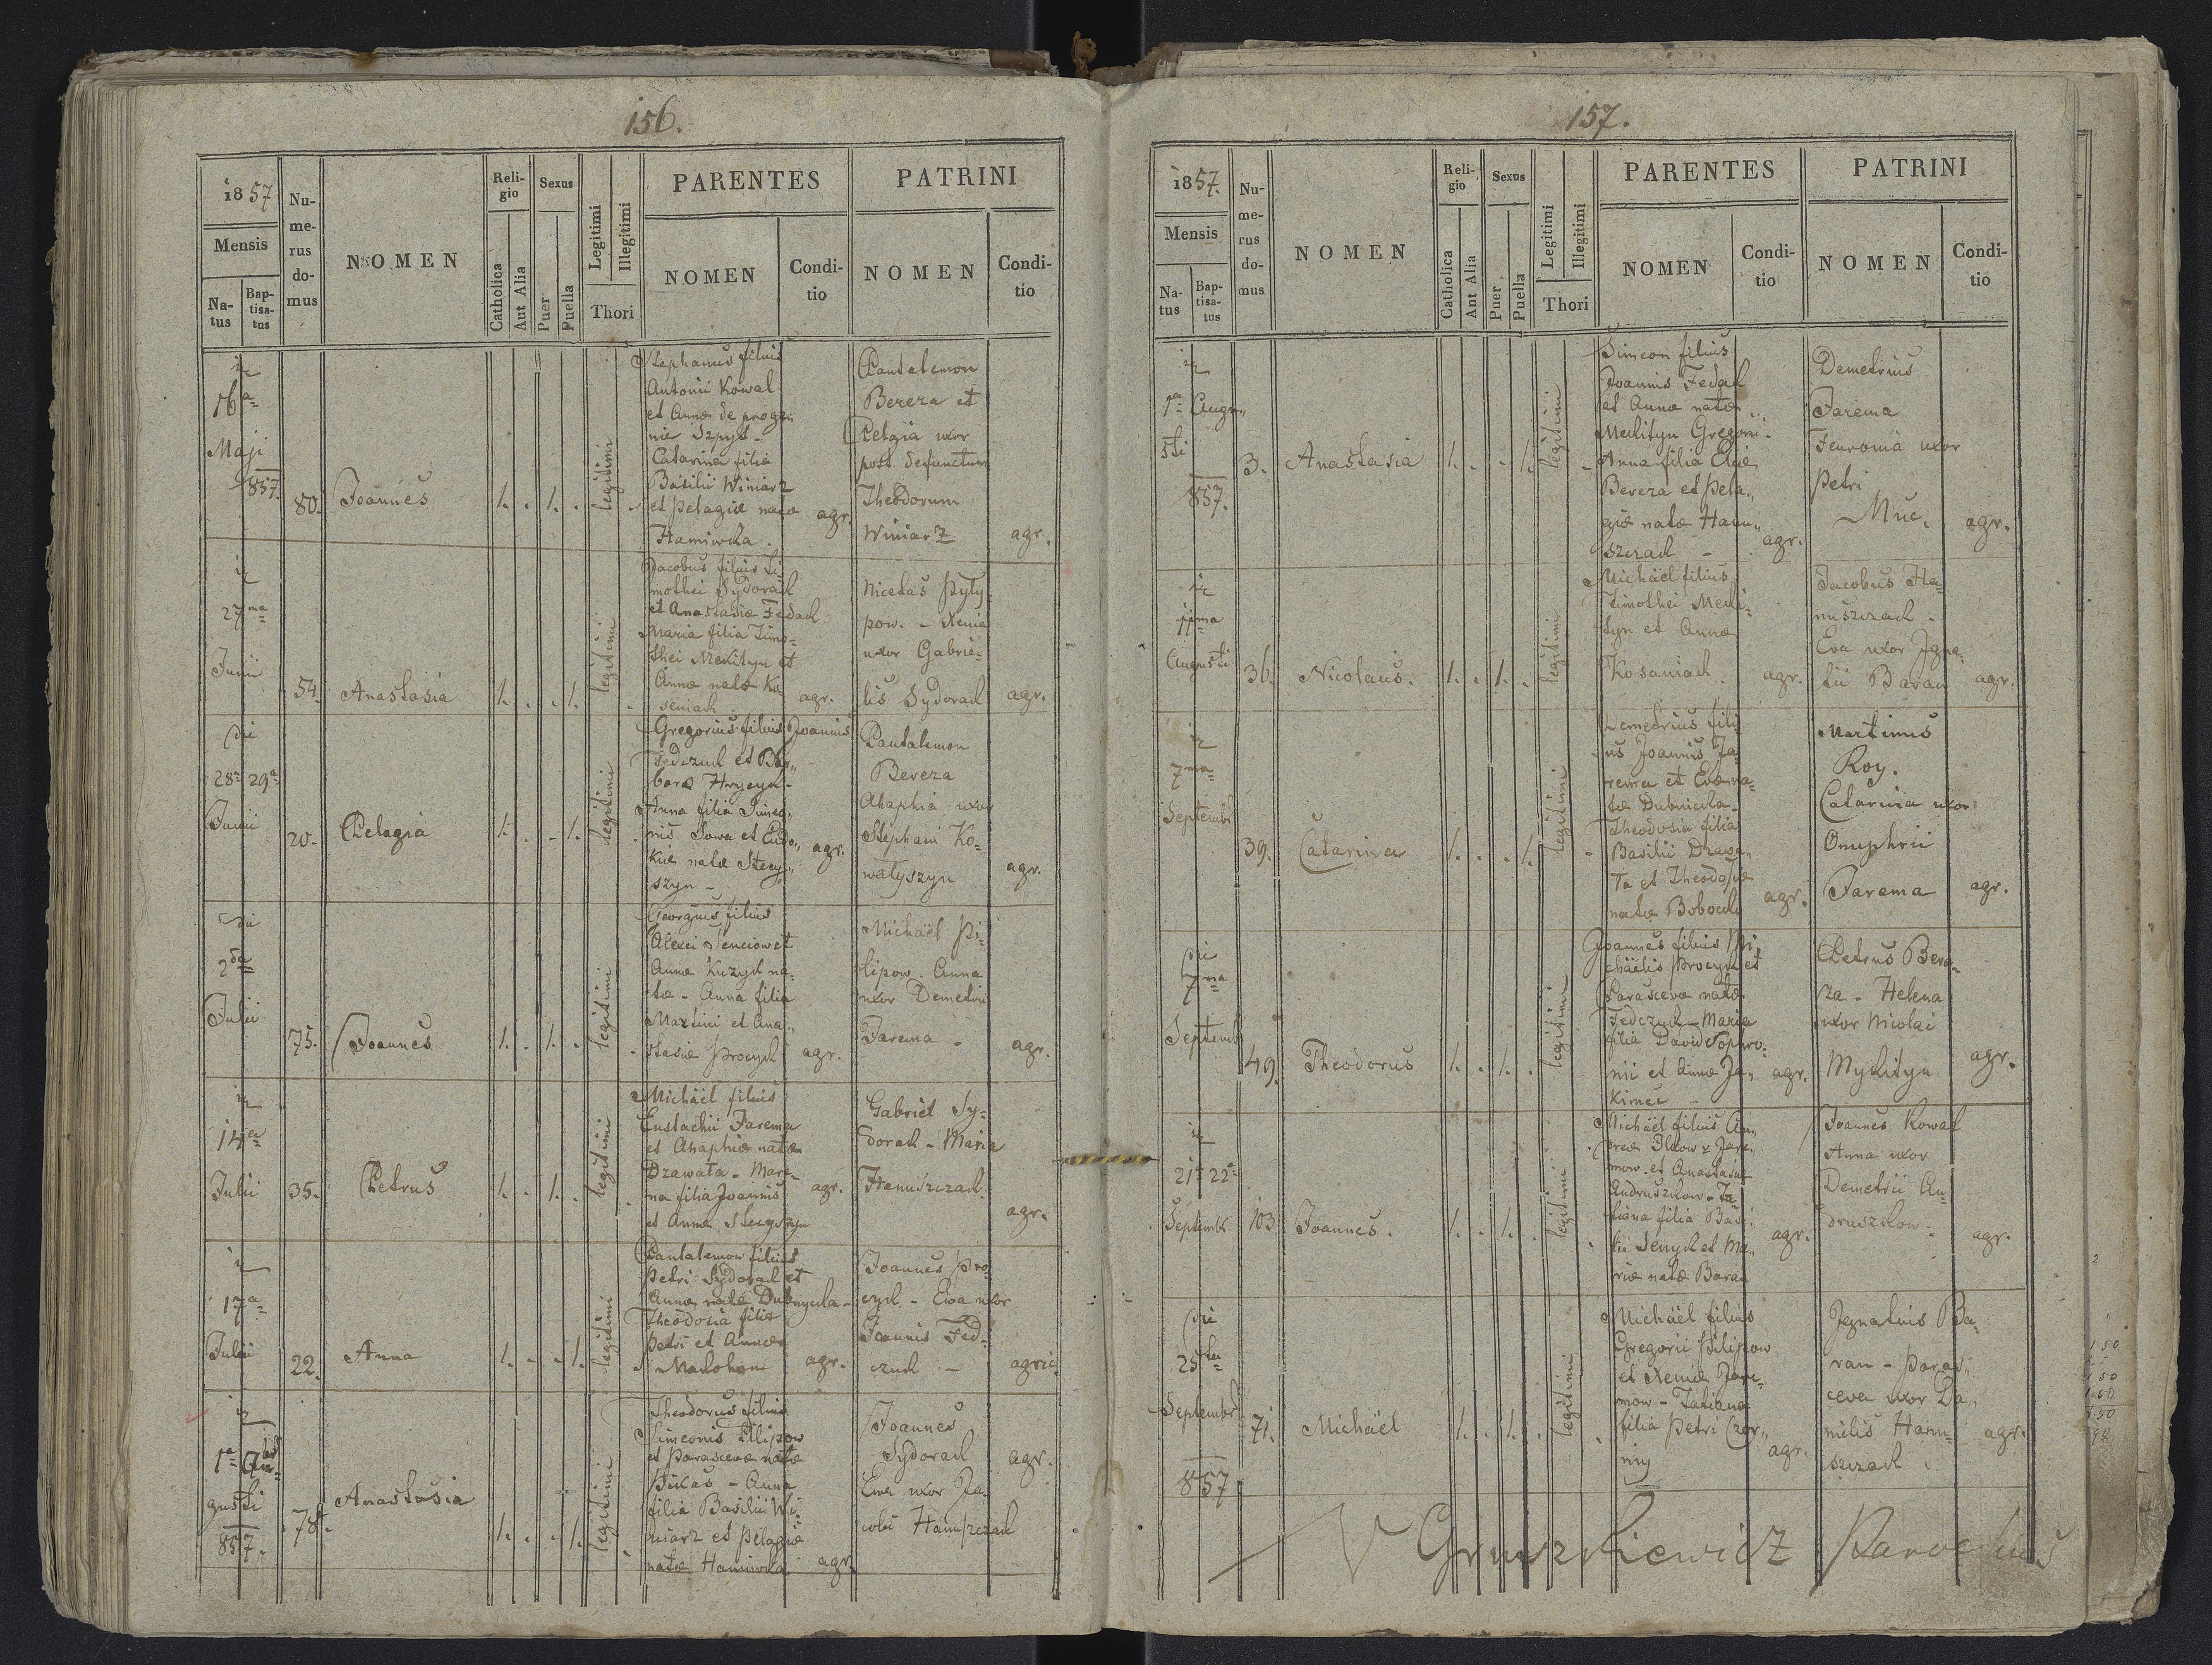 156.
1857
Mensis
Na-
tus
Bap-
tisa-
tus
Nu-
me-
rus
do-
mus
NOMEN
Reli-
gio
Catholica
Aut Alia
Sexus
Puer
Puella
Legitimi
Illegitimi
Thori
PARENTES
NOMEN
Condi-
tio
PATRINI
NOMEN
Condi-
tio
16a
Maji
857.
80.
Joannes
1.
1.
legitimi
Stephanus filius
Antonii Kowal
et Annæ de proge
nie Szpyt -
Catarina filia
Basilii Winiarz
et Pelagiæ natæ
Haniwcka.
agr.
Pantelemon
Bereza et
Pelgia uxor
post defunctum
Theodorum
Winiarz
agr.
27ma
Junii
54.
Anastasia
1.
1.
legitimi
Jacobus filius Ti-
mothei Sydorak
et Anastasiæ Fedak
Maria filia Timo-
thei Mekityn et
Annæ natæ Ko-
seniach
agr.
Nicetas Pyly-
pow. - Xenia
uxor Gabrie-
lis Sydorak
agr.
28a 29a
Junii
20.
Pelagia
1.
1.
legitimi
Gregorius filius Joannis
Fedczuk et Bar-
baræ Hrycyk -
Anna filia Simeo-
nis Sowa et Eudo-
kiæ natæ Stecy-
szyn -
agr.
Pantalemon
Bereza
Ahaphia uxor
Stephani Ko-
walyszyn
agr.
2da
Julii
75.
Joannes
1.
1.
legitimi
Georgius filius
Alexei Senciow et
Annæ Kuzyk na-
tæ - Anna filia
Martini et Ana-
stasiæ Procyk
agr.
Michaël Pi-
lipow. Anna
uxor Demetrii
Jarema -
agr.
14a
Julii
35.
Petrus
1.
1.
legitimi
Michaël filius
Eustachii Jarema
et Ahaphiæ natæ
Dzawata - Mari-
na filia Joannis
et Annæ Stecyszyn
agr.
Gabriel Sy-
dorak - Maria
Hanuszczak
agr.
17a
Julii
22.
Anna
1.
1.
legitimi
Pantalemon filius
Petri Sydorak et
Annæ natæ Dubnycka -
Theodosia filia
Petri et Annæ
agr.
Joannes Pro-
cyk - Ewa uxor
Joannis Fed-
czuk -
agric.
1a Au-
gusti
857.
78.
Anastasia
1.
1.
legitimi
Theodorus filius
Simeonis Pilipow
et Parascevæ natæ
- Anna
filia Basilii Wi-
niarz et Pelagiæ
natæ Haniwcka
agr.
Joannes
Sydorak
Ewa uxor Ja-
cobi Hanuszczak
agr.
157.
1857.
Mensis
Na-
tus
Bap-
tisa-
tus
Nu-
me-
rus
do-
mus
NOMEN
Reli-
gio
Catholica
Ant Alia
Sexus
Puer
Puella
Legitimi
Illegitimi
Thori
PARENTES
NOMEN
Condi-
tio
PATRINI
NOMEN
Condi-
tio
1a Augu-
sti
857.
3.
Anastasia
1.
1.
legitimi
Simeon filius
Joannis Fedak
et Annæ natæ
Mekityn Gregorii -
Anna filia Eliæ
Bereza et Pela-
giæ natæ Hanu-
szczak -
agr.
Demetrius
Jarema
Fenronia uxor
Petri
Muc.
agr.
11ma
Augusti
36.
Nicolaus.
1.
1.
legitimi
Michaël filius
Timothei Meki-
tyn et Annæ
Kosaniach.
agr.
Jacobus Ha-
nuszczak -
Eva uxor Igna-
tii Baran
agr.
7ma
Septembr
39.
Catarina
1.
1.
legitimi
Demetrius fili-
us Joannis Ja-
rema et Evæ na-
tæ Dubnicka -
Theodosia filia
Basilii Dzawa-
ta et Theodosiæ
natæ
agr.
Martinus
Roy.
Catarina uxor
Onuphrii
Jarema
agr.
7ma
Septemb
49.
Theodorus
1.
1.
legitimi
Joannes filius Mi-
chaëlis Procyk et
Parascevæ natæ
Fedczuk - Maria
filia David Sophro-
nii et Annæ Ja-
kimec -
agr.
Petrus Bere-
za - Helena
uxor Nicolai
Mykityn
agr.
21a 22a
Septemb
103
Joannes.
1.
1.
legitimi
Michaël filius An-
dreæ Ilkow z Jare-
mow. et Anastasiæ
Andruszkow - Ta-
tiana filia Basi-
lii Senyk et Ma-
riæ natæ Baran
agr.
Joannes Kowal
Anna uxor
Demetrii An-
druszkow -
agr.
25ta
Septembr
857
71.
Michaël
1.
1.
legitimi
Michaël filius
Gregorii Pilipow
et Xeniæ Jare-
mow - Tatiana
filia Petri Czor-
nij
agr.
Ignatius Ba-
ran - Paras-
ceva uxor Da-
nilis Hanu-
szczak
agr.
V Gruszkiewicz Parochus